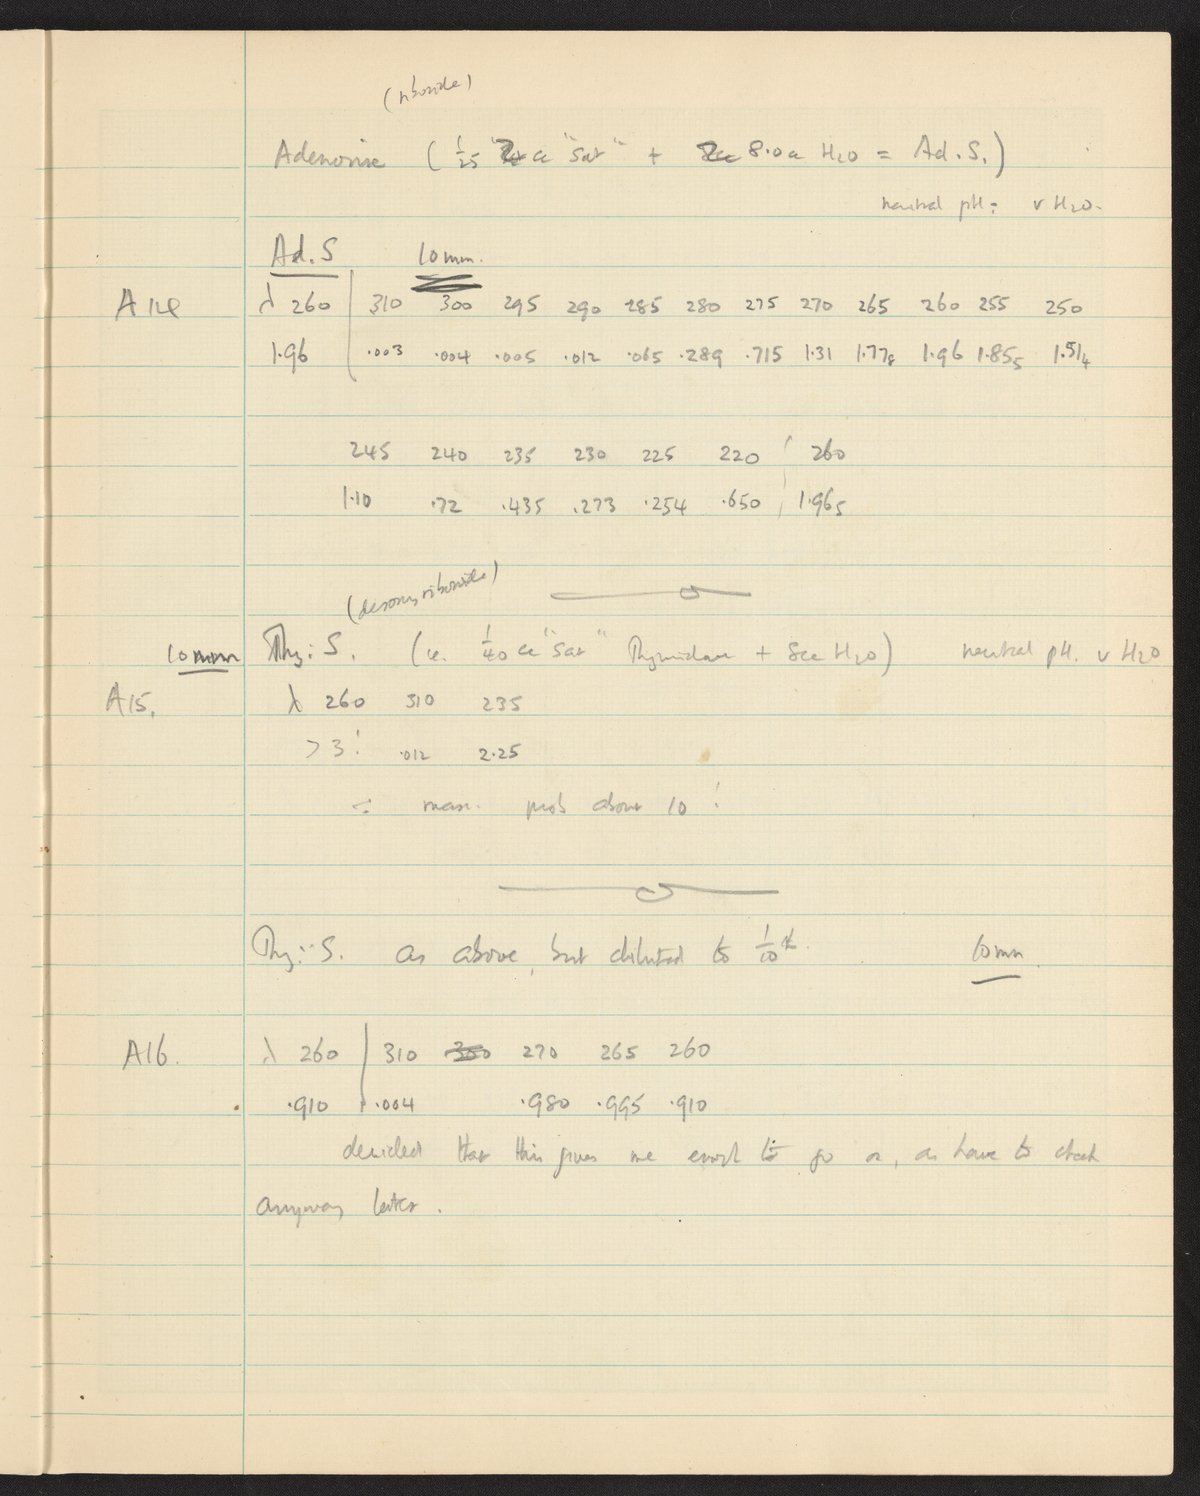 (riboside)
Adenosine ( 1/25 cc "Sat" + 8.0 cc H2O = Ad. S.)
neutral pH: v H2O.
Ad. S 10 mm.
A14 λ 260 | 310 300 295 290 285 280 275 270 265 260 255 250
1.96 | .003 .004 .005 .012 .065 .289 .715 1.31 1.778 1.96 1.855 1.514
245 240 235 230 225 220 260
1.10 .72 .435 .273 .254 .650 1.965
(desoxyriboside)
10 mm Thy: S. (ie. 1/40 cc "Sat" Thymidine + 8cc H2O) neutral pH. v H2O
A15. λ 260 310 235
> 3! .012 2.25
∴ max. prob about 10!
Thy: S. as above, but diluted to 1/10th. 10 mm.
A16. λ 260 | 310 300 270 265 260
.910 | .004 .980 .995 .910
decided that this gives me enough to go on, as have to check
anyway later.